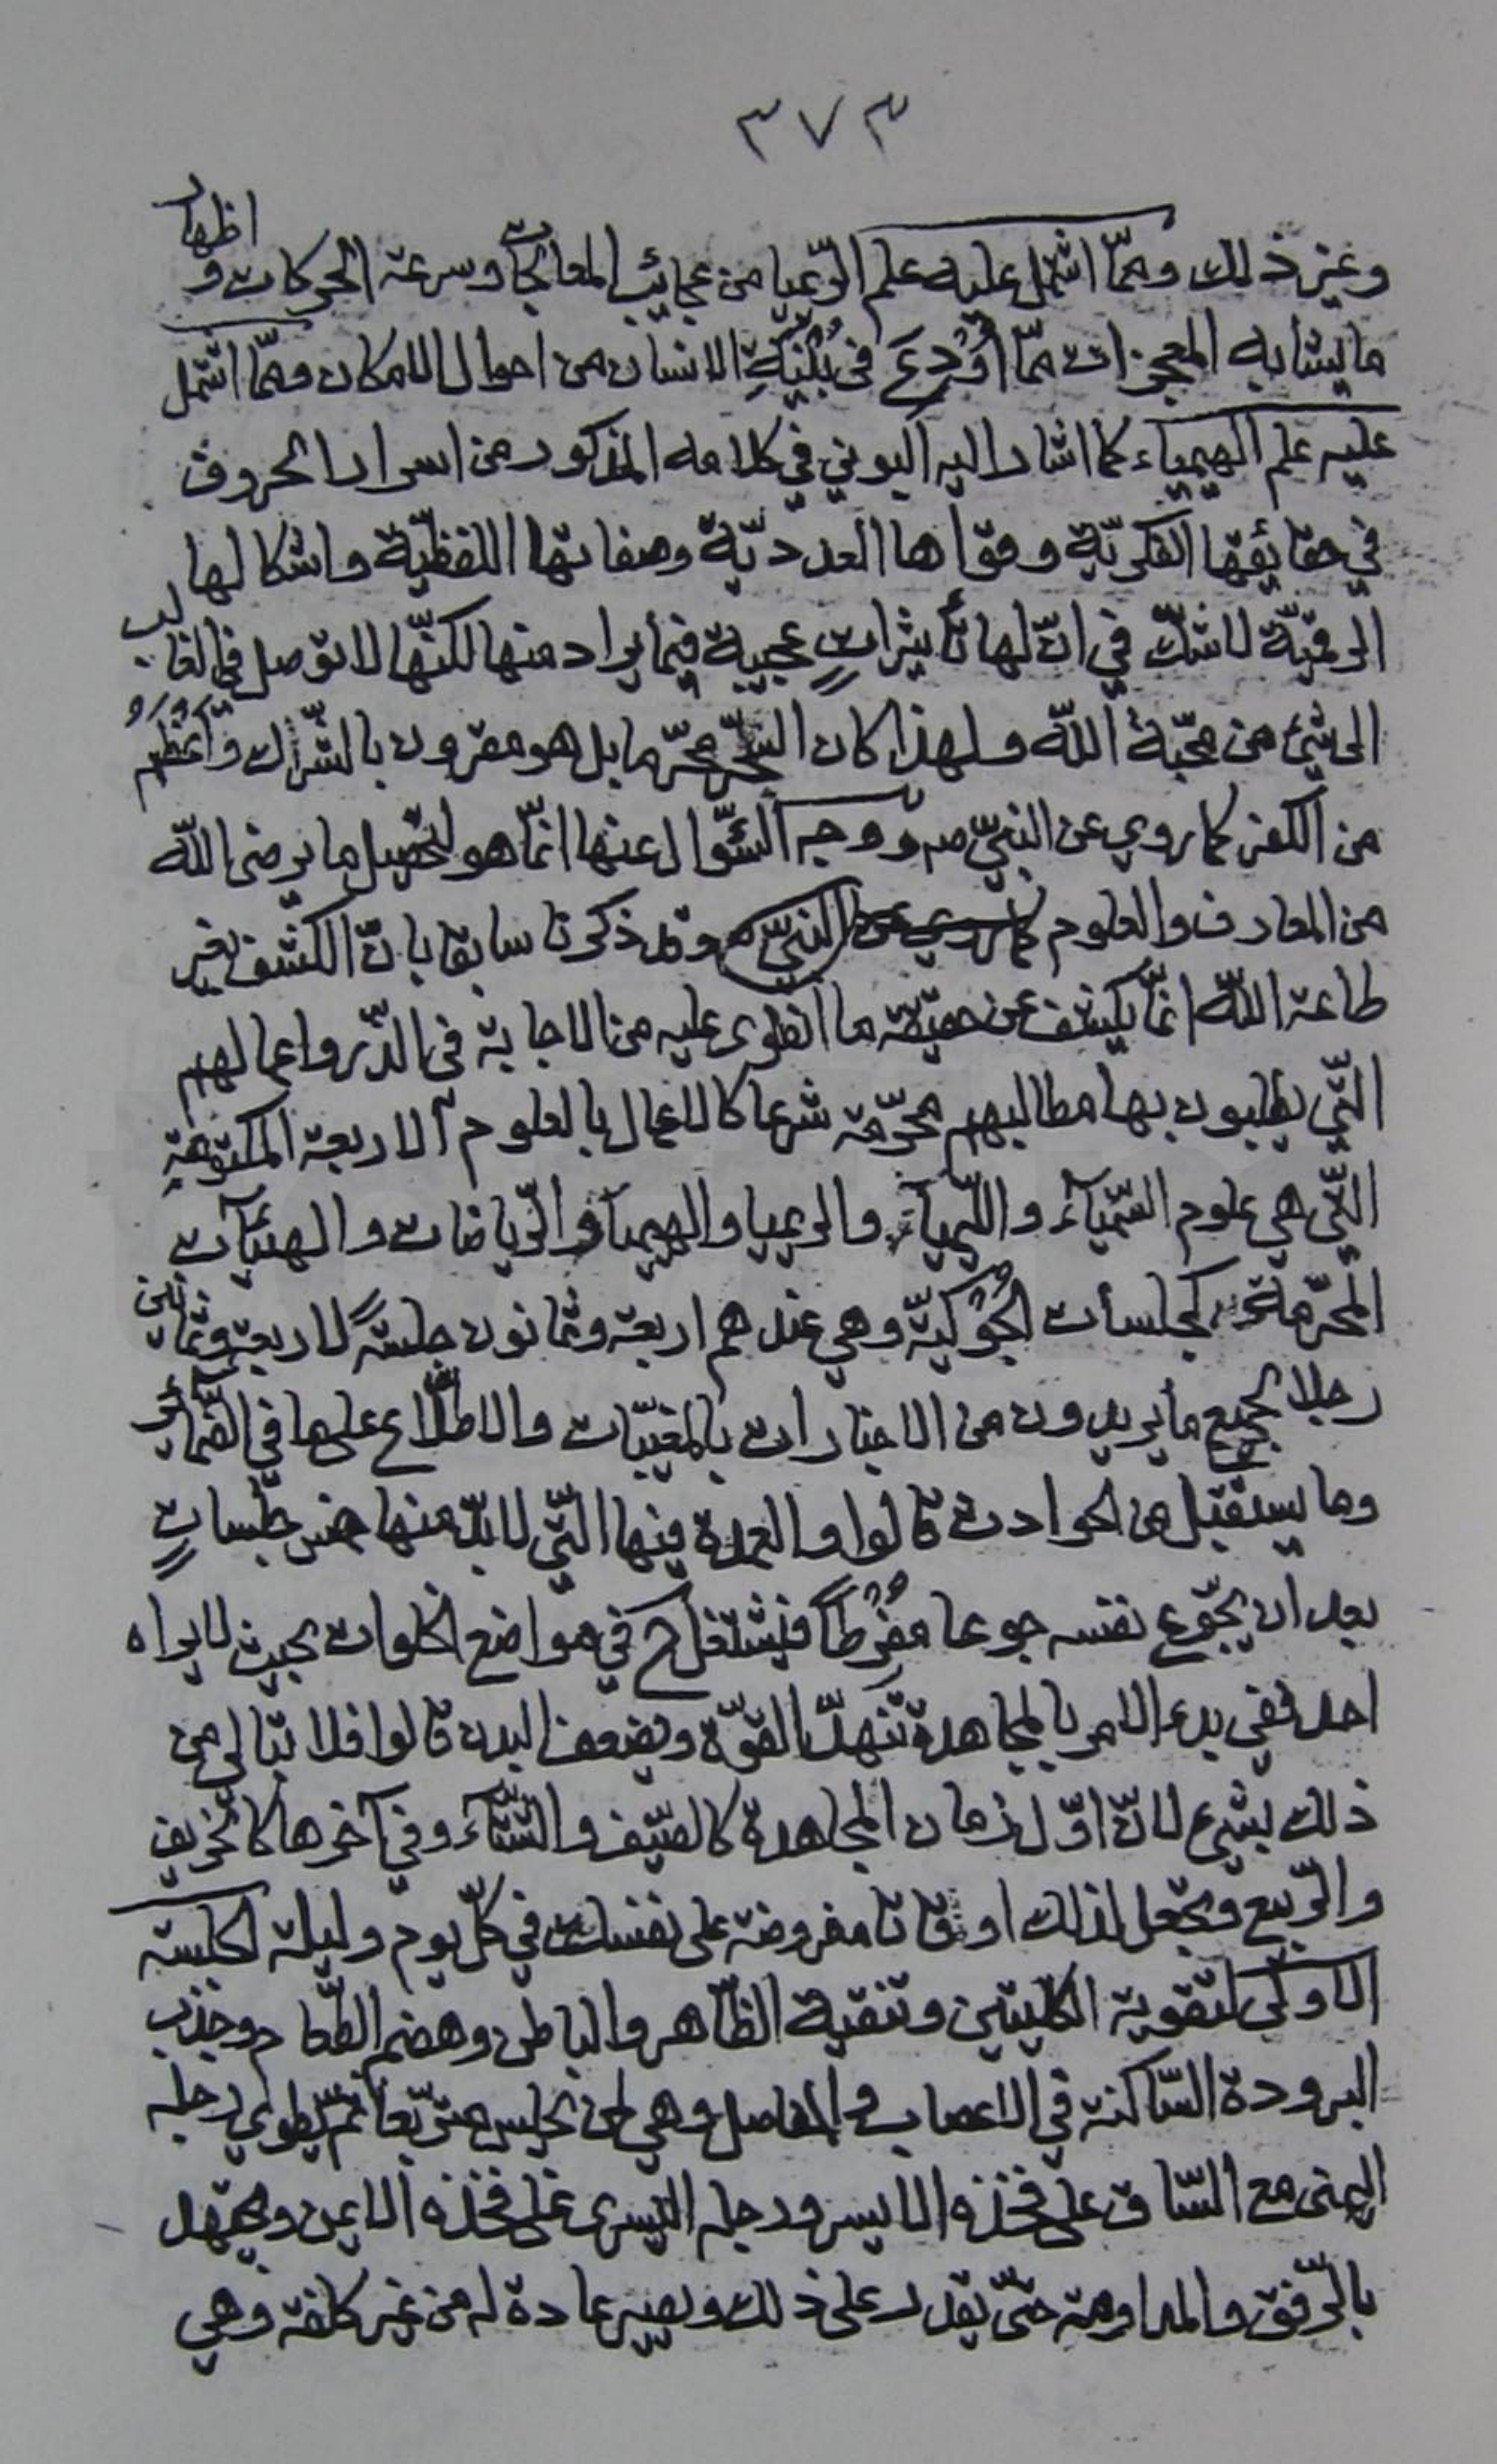 ٣٧٣
وغير ذلك وممّا اشتمل عليه علم الرّيميا من عجايب المعالجات وسرعة الحركات و اظهار
ما يشابه المعجزات ممّا اُوْدِعَ في بُنْيَةِ الانسان من احوال الامكان وممّا اشتمل
عليه علم الهيمياء كما اشار اليه البوني في كلامه المذكور من اسرار الحروف
في حقايقها الفكريّة وقواها العدديّة وصفاتها اللفظيّة واشكالها
الرقميّة لا شكّ في انّ لها تأثيراتٍ عجيبة فيما يراد منها لكنّها لا توصل في الغالب
الى شيء من محبّة الله ولهذا كان السّحر محرّما بل هو مقرون بالشّرك وَاَعْظَمُ
من الكفر كما روي عن النبيّ ص ووجه السّؤال عنها انّما هو لتحصيل ما يرضى الله
من المعارف والعلوم كما روي عن النبيّ ص وقد ذكرنا سابقا بانّ الكشف بغير
طاعة الله انّما يكشف عن حقيقة ما انطوى عليه من الاجابة في الذّر واعمالهم
الّتي يطلبون بها مطالبهم محرّمة شرعا كالاعمال بالعلوم الاربعة المكتومة
الّتي هي علوم السّيمياء واللّيمياء والريميا والهيميا والرّياضات والهيئات
المحرّمة كجلسات الجُوكيّة وهي عندهم اربعة وثمانون جلسة لاربعة وثمانين
رجلا لجميع ما يريدون من الاخبارات بالمغيّبات والاطّلاع عليها في الضّمائر
وما يستقبل من الحوادث قالوا والعمدة فيها الّتي لا بدّ منها خمس جلساتٍ
بعد ان يجوّع نفسه جوعا مُفْرِطًا فيشتغل ح في مواضع الخلوات بحيث لا يراه
احد ففي بدء الامر بالمجاهدة تنهدّ القوّة ويضعف البدن قالوا فلا تبالي من
ذلك بشيء لانّ اوّل زمان المجاهدة كالصّيف والشّتاء وفي آخرها كالخريف
والرّبيع وتجعل لذلك اوقاتا مفروضة على نفسك في كلّ يوم وليلة الجلسة
الاولى لتقوية الكليتين وتنقية الظّاهر والباطن وهضم الطّعام وجذب
البرودة السّاكنة في الاعصاب والمفاصل وهي ان يجلس متربّعا ثمّ يطوي رجله
اليمنى مع السّاق على فخذه الايسر ورجله اليسرى على فخذه الايمن ويجتهد
بالرّفق والمداومة حتّى يقدر على ذلك ويصير عادة له من غير كلفة وهي